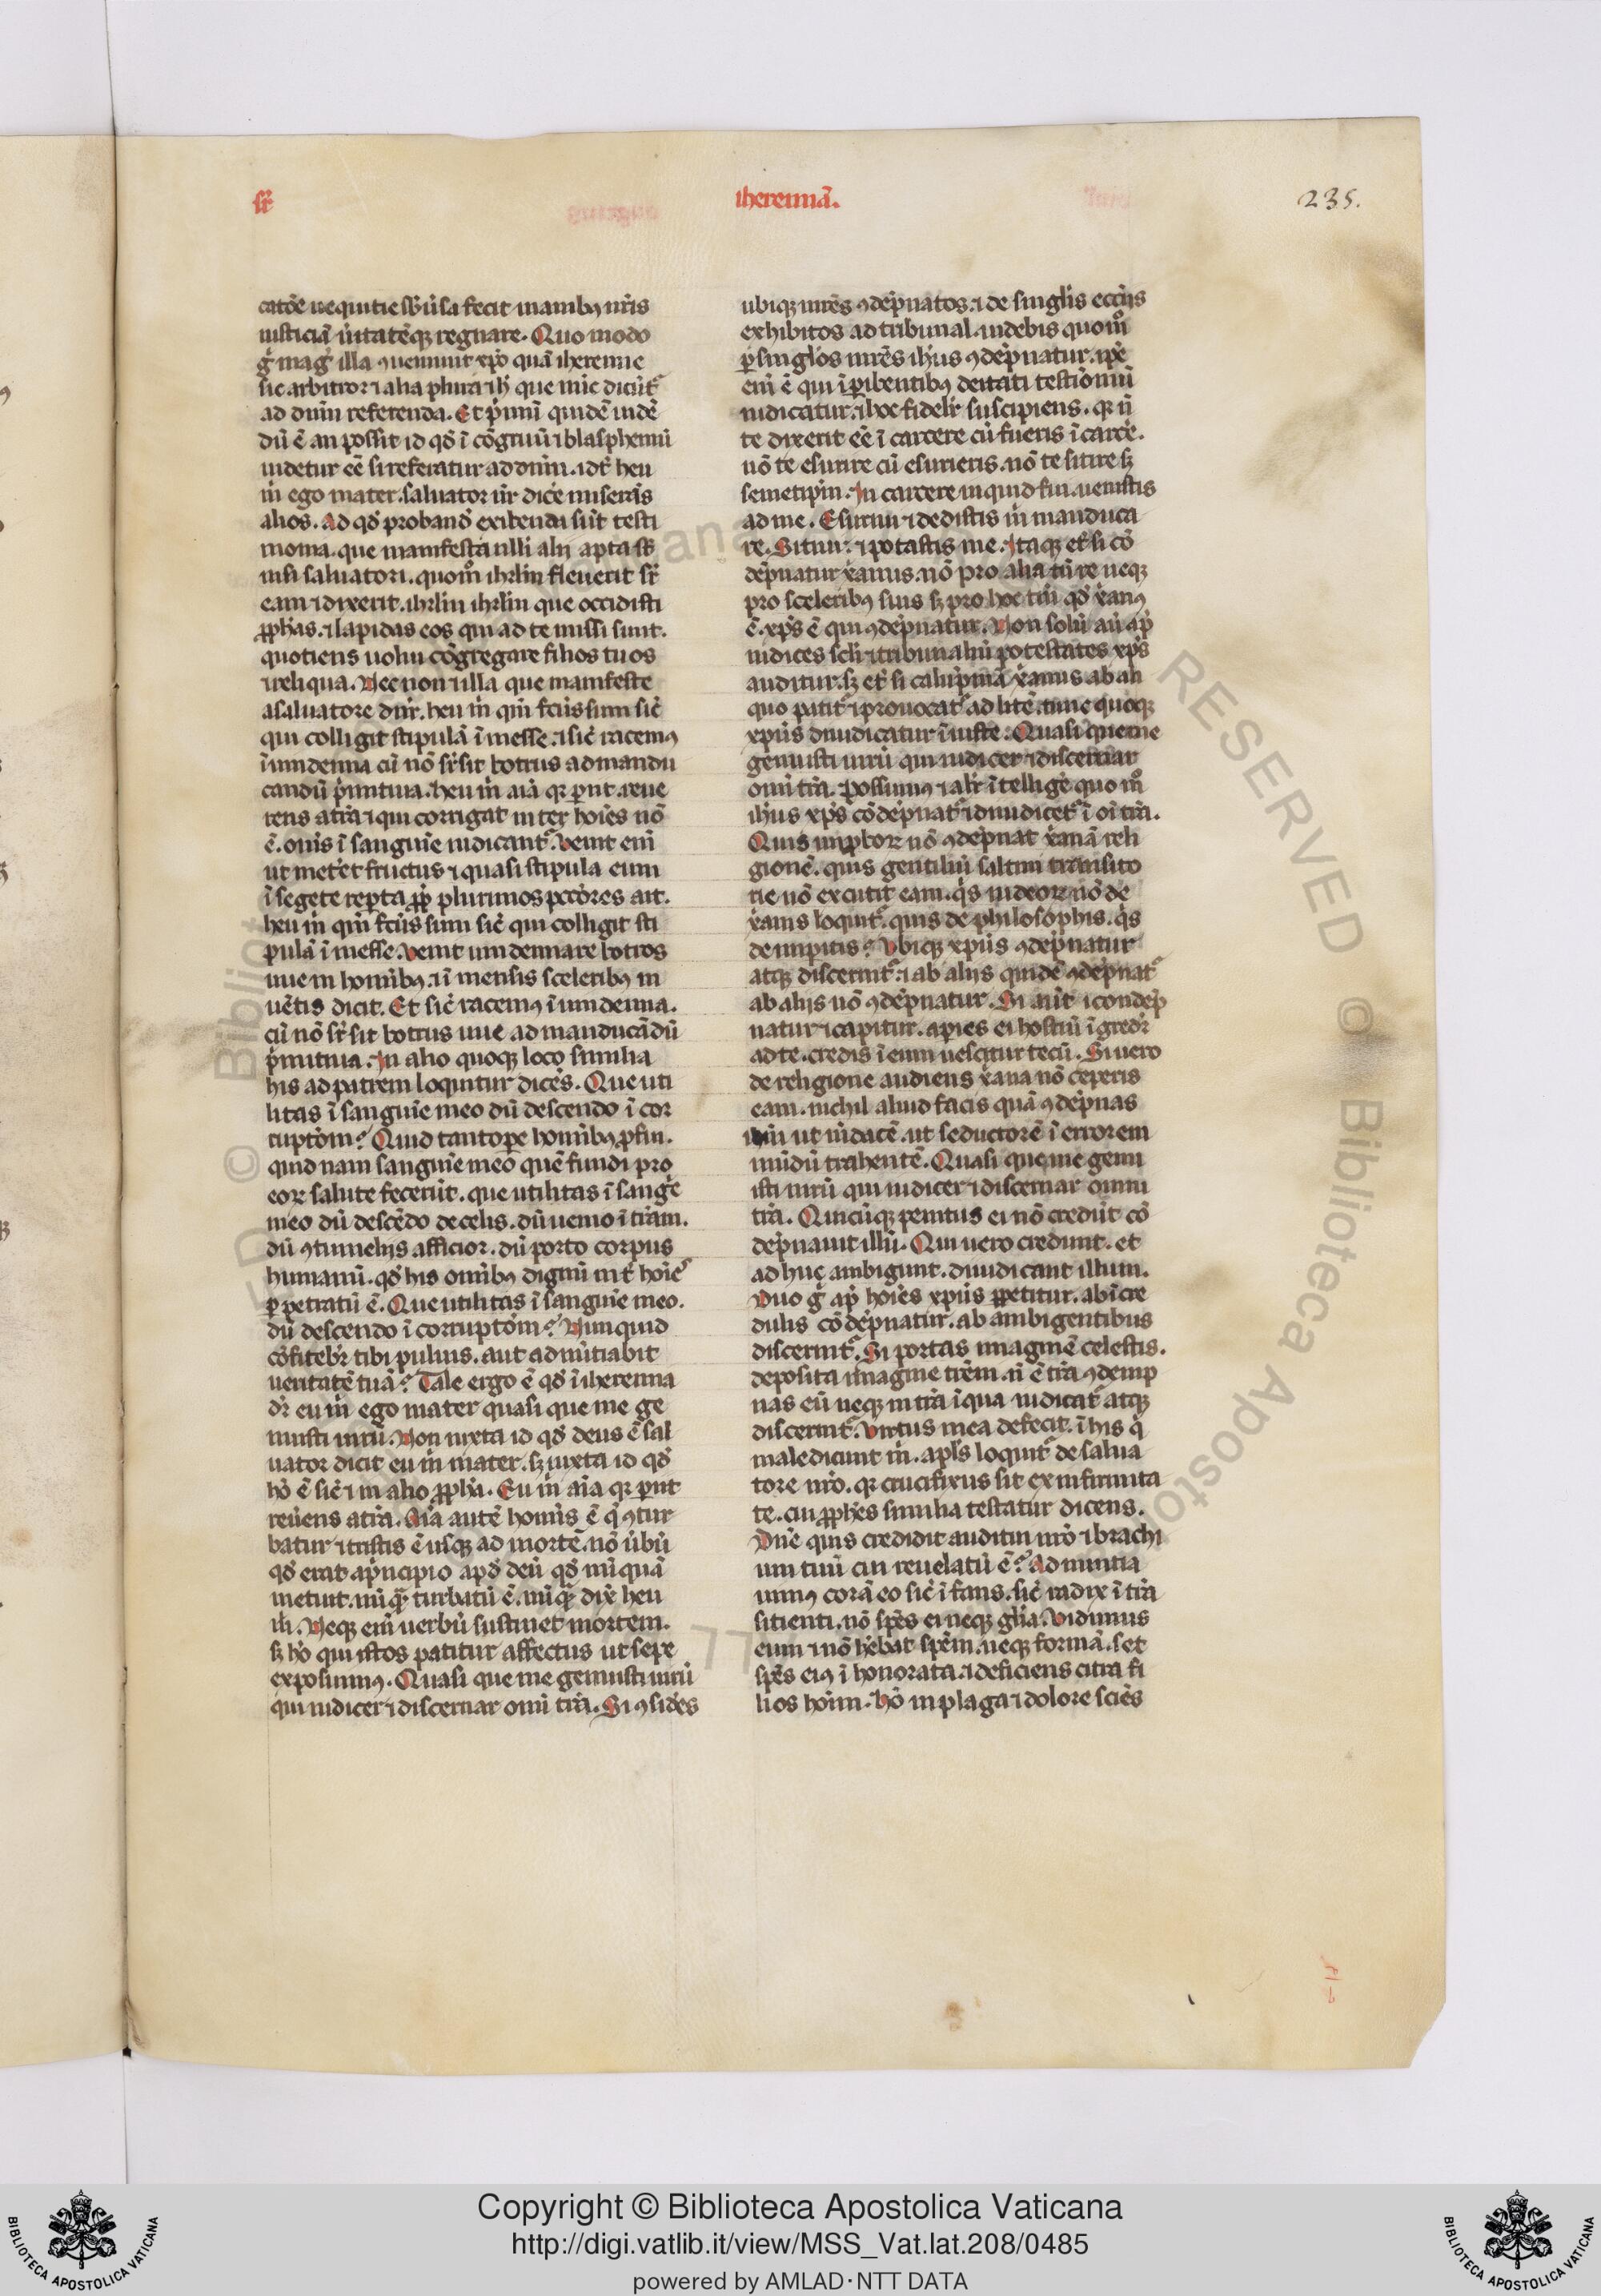 sr̄
iheremiā.
235.
catōe nequitie sb̄uersa fecit manibꝫ nr̄is
iusticiā ūitatēqꝫ regnare. Quo modo
g̊ mag̊ illa ꝯueniunt xp̄o quā iheremie
sic arbitror ⁊ alia plura
ad dn̄m referenda. Et p̄mū quidē uidē
dū ē an possit id qd̄ ī cōgruū ⁊ blasphemū
uidetur eē si referatur ad dn̄m. heu
m̄ ego mater. saluator
alios. Ad qd̄ proband̄ exibenda sūt testi
monia. que manifesta nlli alii apta st̄
nisi saluatori. quom̊ ihrl̄m fleuerit sr̄
eam ⁊ dixerit. ihrl̄m ihrl̄m que occidisti
ꝓph̄as. ⁊ lapidas eos qui ad te missi sunt.
quotiens uolui cōgregare filios tuos
⁊ reliqua. Nec non ⁊ illa que manifeste
a saluatore dn̄r. heu m̄ qm̄ fctūs sum sic̄
qui colligit stipulā ī messe. ⁊ sic̄ racemꝰ
ī uindemia cū nō sr̄ sit botrus ad mandu
candū p̄mitiua. heu m̄ aīa qꝛ ꝑiit. reue
rens a tr̄a ⁊ qui corrigat inter hoīes nō
ē. om̄s ī sanguīe iudicant᷑. Venit enī
ut met̄et fructus ⁊ quasi stipula eum
ī segete repta ꝓp̄ plurimos pctōres ait.
heu m̄ qm̄ fctūs sum sic̄ qui colligit sti
pulā ī messe. Venit uindemiare botros
uue in homībꝫ. ⁊ ī mensis sceleribꝫ in
uētis dicit. Et sic̄ racemꝰ ī uindemia.
cū nō sr̄ sit botrus uue ad manducādū
p̄mitiua. In alio quoqꝫ loco similia
his ad patrem loquitur dicēs. Que uti
litas ī sanguīe meo dū descendo ī cor
ruptōm? Quid tantoꝑe homībꝫ ꝓfui.
quid nam sanguīe meo quē fundi pro
eoꝝ salute fecerūt. que utilitas ī sangīe
meo dū descēdo de celis. dū uenio ī tr̄am.
dū ꝯtumeliis afficior. dū porto corpus
humanū. qd̄ his om̄ibꝫ dignū int̄ hoīes
ꝑpetratū ē. Que utilitas ī sanguīe meo.
dū descendo ī corruptōm? Nunquid
cōfitebr̄ tibi puluis. aut adnūtiabit
ueritatē tuā? Tale ergo ē qd̄ ī iheremia
dr̄ eu m̄ ego mater quasi que me ge
nuisti uirū. Non iuxta id qd̄ deus ē sal
uator dicit eu m̄ mater. sꝫ iuxta id qd̄
hō ē sic̄ ⁊ in alio ꝓph̄a. Eu m̄ aīa qꝛ ꝑiit
reūens a tr̄a. Aīa autē homīs ē q̄ ꝯtur
batur ⁊ tristis ē usqꝫ ad mortē. nō ūbū
qd̄ erat a p̄ncipio apd̄ deū qd̄ nūquā
metuit. nūqꝫ turbatū ē. nūqꝫ dix̄ heu
m̄. Neqꝫ enī uerbū sustinet mortem.
sꝫ hō qui istos patitur affectus ut sepe
exposuimꝰ. Quasi que me genuisti uirū
qui iudicer ⁊ discernar omī tr̄a. Si ꝯsidēs
ubiqꝫ mr̄es ꝯdēpnatos. ⁊ de singl̄is ecc̄iis
exhibitos ad tribunal. uidebis quom̊
ꝑ singl̄os mr̄es ih̄us ꝯdēpnatur. ip̄e
enī ē qui ī ꝑibentibꝫ deitati testiōniū
iudicatur. ⁊ hoc fidelr̄ suscipiens. qꝛ n̄
te dixerit eē ī carcere cū fueris ī carcēe.
nō te esurire cū esurieris. nō te sitire sꝫ
semetip̄m. In carcere inquid fui. uenistis
ad me. Esuriui ⁊ dedistis m̄ manduca
re. Sitiui. ⁊ potastis me. Itaqꝫ et̄ si cō
dēpnatur x̄anus. nō pro alia tū re neqꝫ
pro sceleribꝫ suis sꝫ pro hoc tm̄ qd̄ x̄anꝰ
ē. xp̄s ē qui ꝯdēpnatur. Non solū aū ap̄
iudices scl̄i ⁊ tribunaliū potestates xp̄s
auditur. sꝫ et̄ si calūpniā x̄anus ab ali
quo patit᷑ ⁊ prouocat᷑ ad litē. tunc quoqꝫ
xp̄us diiudicatur īiuste. Quasi que me
genuisti uirū qui iudicer ⁊ discernar
omī tr̄a. Possumꝰ ⁊ alr̄ ītelligēe quom̊
ih̄us xp̄s cōdēpnat᷑ ⁊ diiudicet᷑ ī oī tr̄a.
Quis imꝓboꝝ nō ꝯdēpnat x̄anā reli
gionē. quis gentiliū saltim transito
rie nō excutit eam. q̄s iudeoꝝ nō de
x̄anis loquit᷑. quis de philosophis. q̄s
de imperitis? Ubiqꝫ xp̄us ꝯdēpnatur
atqꝫ discernit᷑. ⁊ ab aliis quidē ꝯdēpnat᷑
ab aliis nō ꝯdēpnatur. Si condēp
natur ⁊ capitur. apies ei hostiū īgredr̄
ad te. credis ī eum uescitur tecū. Si uero
de religione audiens x̄ana nō ceperis
eam. nichil aliud facis quā ꝯdēpnas
ih̄m ut mēdacē. ut seductorē ī errorem
mūdū trahentē. Quasi que me genu
isti uirū qui iudicer ⁊ discernar omni
tr̄a. Quicūqꝫ penitus ei nō credūt cō
dēpnauit illū. Qui uero credunt. et
adhuc ambigunt. diiudicant illum.
Duo g̊ ap̄ hoīes xp̄us ꝑpetitur. ab īcre
dulis cōdēpnatur. ab ambigentibus
discernit᷑. Si portas imaginē celestis.
deposita imagine tr̄em. n̄ ē tr̄a ꝯdemp
nas eū neqꝫ in tr̄a ī qua iudicat᷑ atqꝫ
discernit᷑. Virtus mea defecit. ī his q̄
maledicunt m̄. apl̄s loquit᷑ de salua
tore nr̄o. qꝛ crucifixus sit ex infirmita
te. cui ꝓph̄es similia testatur dicens.
Dn̄e quis credidit auditui nr̄o ⁊ brachi
um tuū cui reuelatū ē? Adnuntia
uimꝰ corā eo sic̄ īfans. sic̄ radix ī tr̄a
sitienti. nō sp̄es ei neqꝫ gl̄ia. Vidimus
eum ⁊ nō h̄ebat sp̄em. neqꝫ formā. set
sp̄es eiꝰ ī honorata. ⁊ deficiens citra fi
lios hoīm. Hō in plaga ⁊ dolore sciēs
Copyright © Biblioteca Apostolica Vaticana
http://digi.vatlib.it/view/MSS_Vat.lat.208/0485
powered by AMLAD·NTT DATA